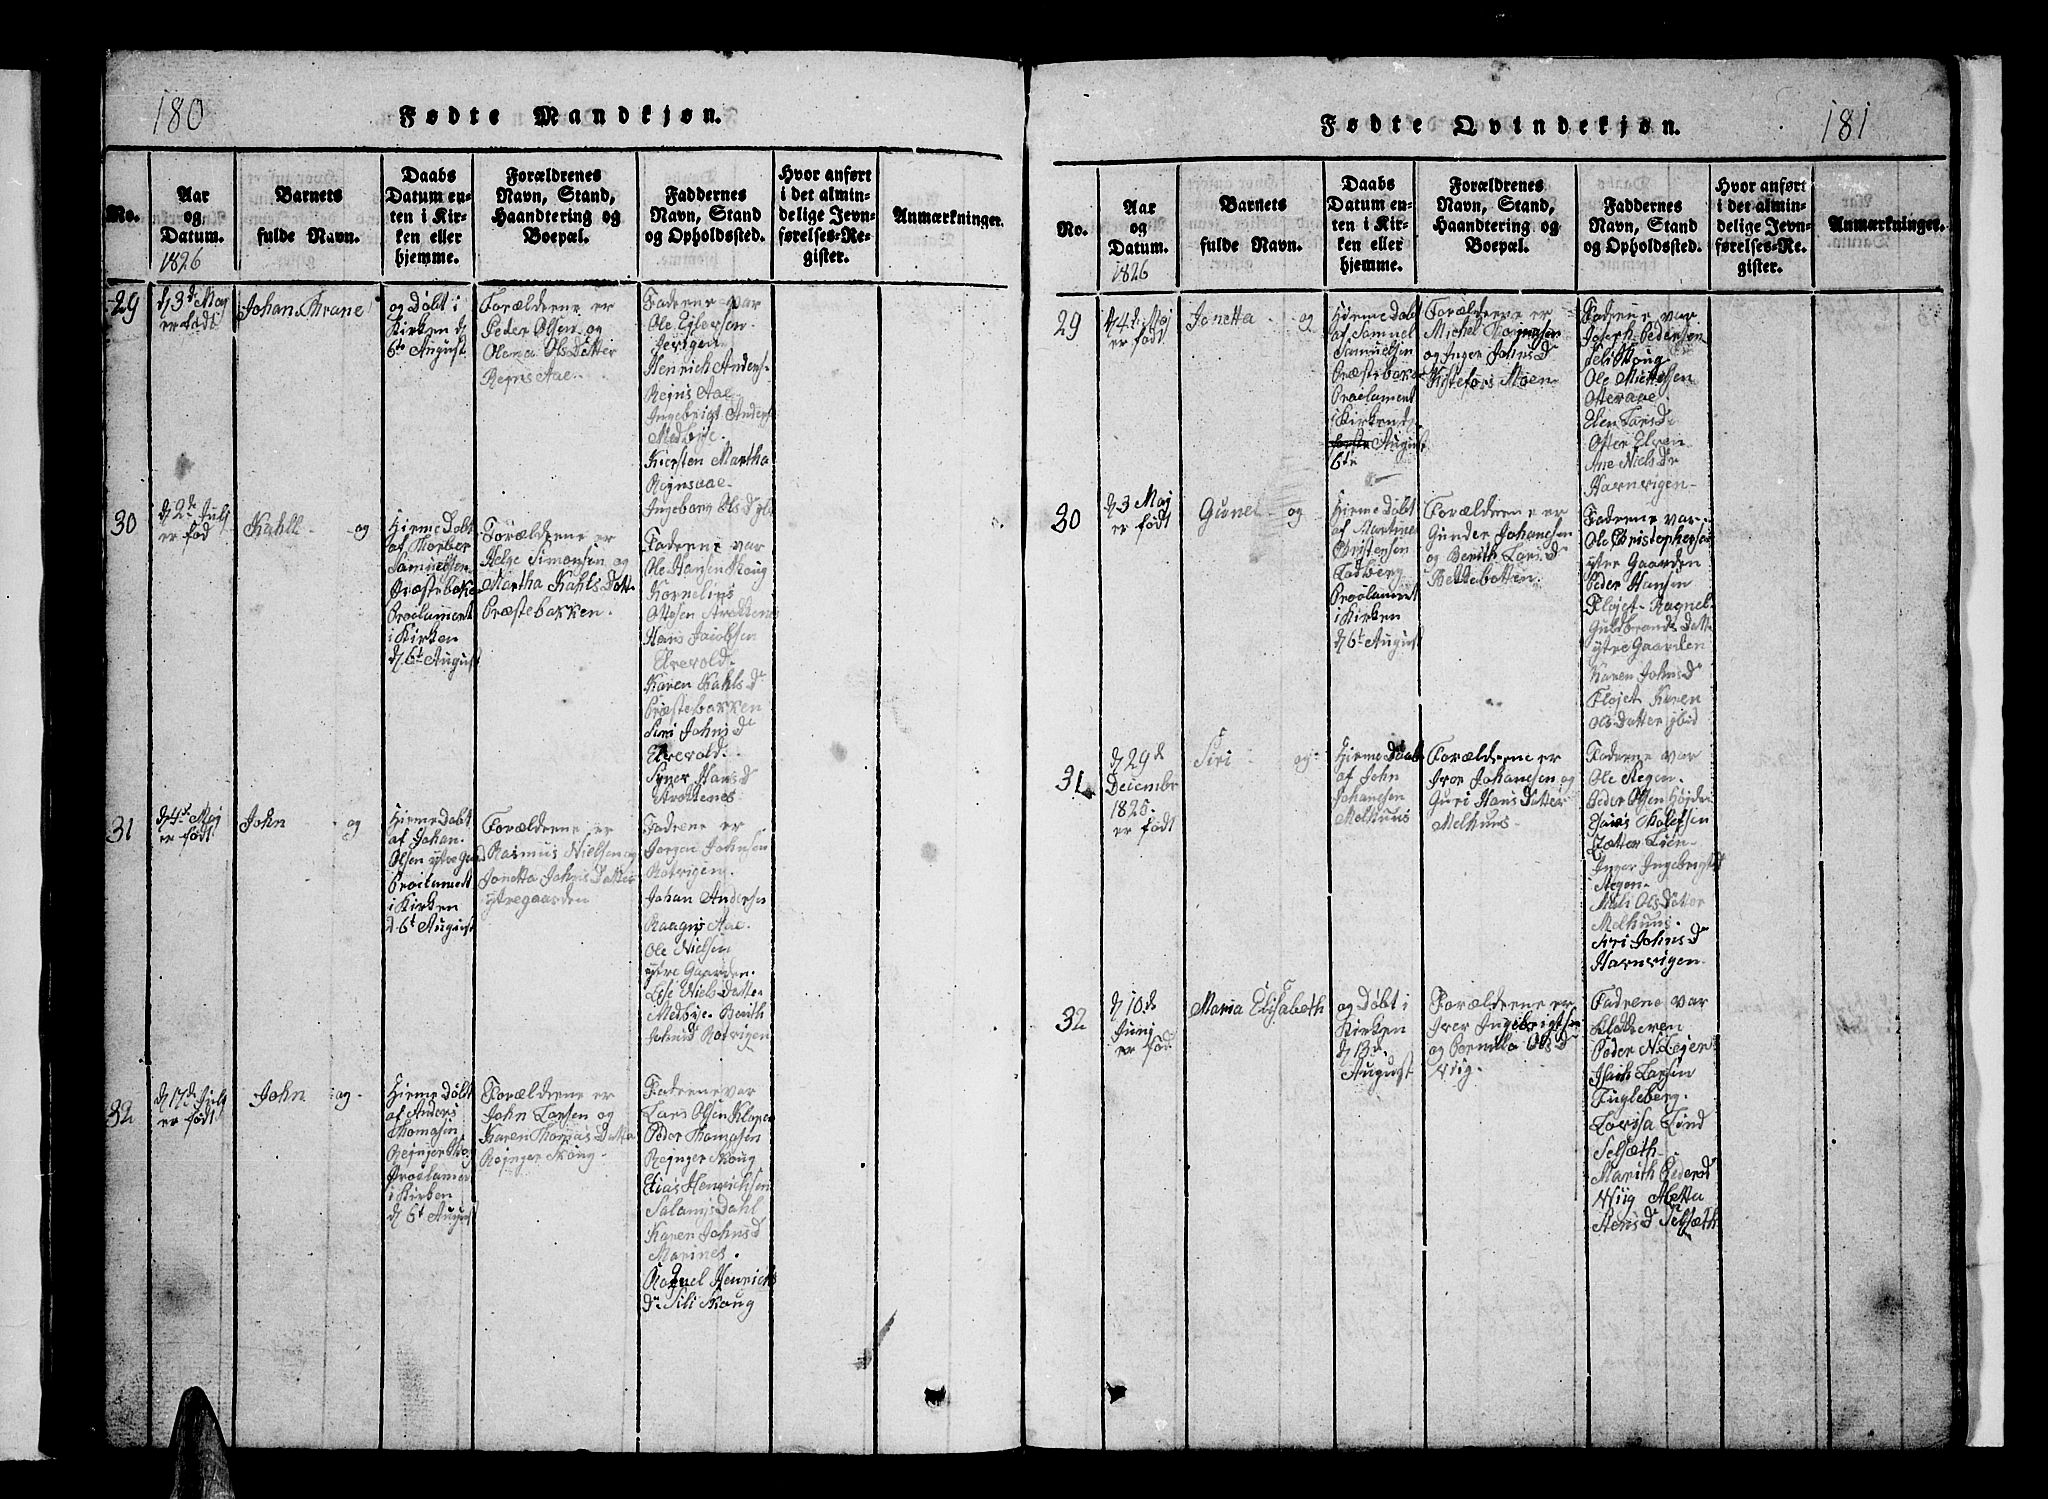 180
Fødte Mandkjøn.
No.
Aar
og
Datum.
1826
Barnets
fulde Navn.
Daabs
Datum en-
ten i Kir-
ken eller
hjemme.
Forældrenes
Navn, Stand,
Haandtering og
Boepæl.
Faddernes
Navn, Stand
og Opholdssted.
Hvor anført
i det almin-
delige Jevn-
førelses-Re-
gister.
Anmærkninger.
29
d 3d Maj
er født
Johan Krane
og Døbt i
Kirken d
6te August
Forældrene er
Peder Olsen og
Olema Olsdatter
Rejns Aae.
Faderne var
Ole Ejlersen
Henrich Anders-
Rejns Aae
Ingebrigt Anders
Medbye.
Kiersten Martha
Rejnsaae-
Ingeborg Olsd
30
d 2de Juli
er fød
Kahll - og
Hieme Døbt
af Thorber
Samuelsen
Præstebakke
Proclamert
i Kirken
d 6t August
Forældrene er
Helge Simonsen og
Martha Kahls Datt
Præstebakken.
Faderne var
Ole Hansen Skoug
Kornelius
Ottesen
Hans Jacobsen
Elvevold.
Karen Kahls Dr
Præstebakken
Siri Johns Dr
Elvevold.
Hans Dr
31
d 4d Maj
er født
John - og
Hieme Døbt
af Johan
Olsen ytre Gaard
Proclamert
i Kirken
d. 6t August
Forældrene er
Rasmus Nielsen og
Jonetta Johns Datter
ytregaarden
Fadrene er
Jørgen Johnsen
Rotvigen.
Johan Andersen
Aae.
Ole Nielsen
ytre Gaarden.
Lise Niels Datter
Medbye. Berith
Johnsd Rotvigen
32
d 17d Juli
er født
John - og
Hieme Døbt
af Anders
Thomasen
Proclamer
i Kirken
d 6t August
Forældrene er
John Larsen og
Karen Thomas Datter
Rejnger Skoug.
Fadrene var
Lars Olsen
Peder Thomasen
Rejnger Skoug
Elias Henrichsen
Salangs Dahl
Karen Johnsd
Marines.
Ragnel Henrichs
Dr Sili Skoug
181
Fødte Qvindekjøn.
No.
Aar
og
Datum.
1826
Barnets
fulde Navn.
Daabs
Datum en-
ten i Kir-
ken eller
hjemme.
Forældrenes
Navn, Stand,
Haandtering og
Boepæl.
Faddernes
Navn, Stand
og Opholdssted.
Hvor anført
i det almin-
delige Jevn-
førelses-Re-
gister.
Anmærkninger.
29
d 4d Maj
er født
Jonetta - og
Hieme Døbt
af Samuel
Samuelsen
Præstebakke
Proclamert
i Kirken d.
August
6te
Forældrene er
Michel
og Inger Johns Dr
Kistefors Moen
Faderne var
Joseph Pedersen
Sili Skoug
Ole Mickelsen
Osteraae.
Elen Larsdr
Ofter Elven
Ane Niels Dr
Havnvigen-
30
d 3 Maj
er født
Gunel - og
Hieme Døbt
af Martinus
Christensen
Fodberg
Proclamert
i Kirken
d 6t August
Forældrene er
Gunder Johanesen
og Berith Lars Dr
Bottebotten.
Faderne var
Ole Christophersen
ytre Gaarden
Peder Hansen
Fløjet. Ragnel
Guldbrands Datt
ytre Gaarden
Karen Johns Dr
Fløjet Karen
Ols Datter ibid
31
d 29d
Decembr
1825.
er født
Siri - og
Hieme Døbt
af John
Johanesen
Melhuus
Forældrene er
Iver Johanesen og
Guri Hans Datter
Melhuus.
Faderne var
Ole Stegen.
Peder Olsen
Lien-
Inger Ingebrigtsd
Stegen-
Mali Ols Datter
Melhuus.
Siri Johns Dr
Havnvigen
32
d 10de
Juni
er fød
Maria Elisabeth
og Døbt i
Kirken
d 13d.
August
Forældrene er
Iver Ingebrigtsen
og Pernilla Ols Dr
Wiig.
Fadrene var
Klokkeren
Peder N. Lejer
Isach Larsen
Fugleberg.
Lovisa Lind
Selsæth.
Marith Pedersd
Wiig Mætta
Stensd Selsæth